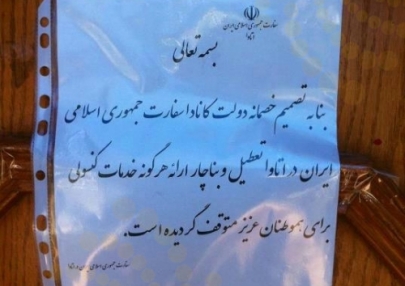 سفارت جمهوری اسلامی ایران
اتاوا
بسمه تعالی
بنا به تصمیم خصمانه دولت کانادا سفارت جمهوری اسلامی
ایران در اتاوا تعطیل و بناچار ارائه هرگونه خدمات کنسولی
برای هموطنان عزیز متوقف گردیده است.
سفارت جمهوری اسلامی ایران - اتاوا